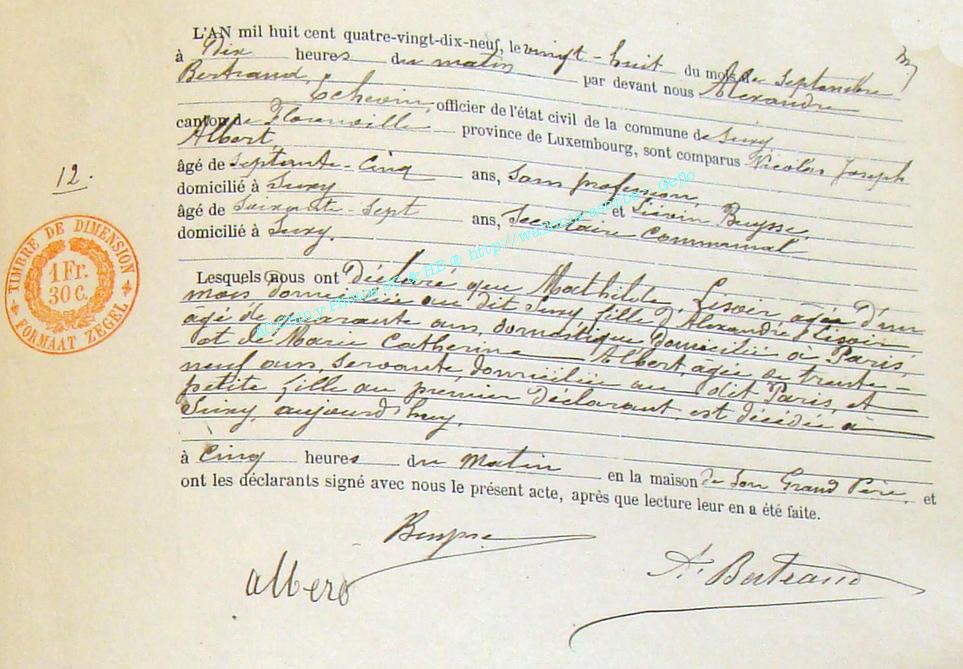 L'AN mil huit cent quatre-vingt-dix-neuf, le vingt-huit du mois de Septembre
à Dix heures du matin par devant nous Alexandre
Bertrand, Echevin, officier de l'état civil de la commune de Suxy
canton de Florenville province de Luxembourg, sont comparus Nicolas Joseph
Albert,
âgé de Septante-Cinq ans, Sans profession,
domicilié à Suxy et Liévin Buysse,
âgé de Soixante-Sept ans, Secrétaire Communal
domicilié à Suxy.
12.
TIMBRE DE DIMENSION
1 Fr.
30 C.
FORMAAT ZEGEL
Lesquels nous ont Déclaré que Mathilde, agée d'un
mois domiciliée au dit Suxy fille d'Alexandre
âgé de quarante ans, domestique domicilié à Paris
et de Marie Catherine Albert, agée de trente-
neuf ans, servante, domiciliée au dit Paris, et
petite fille au premier déclarant est décédée à
Suxy, aujourd'huy,
à Cinq heures du Matin en la maison de son Grand Père, et
ont les déclarants signé avec nous le présent acte, après que lecture leur en a été faite.
Buysse
albert
A. Bertrand